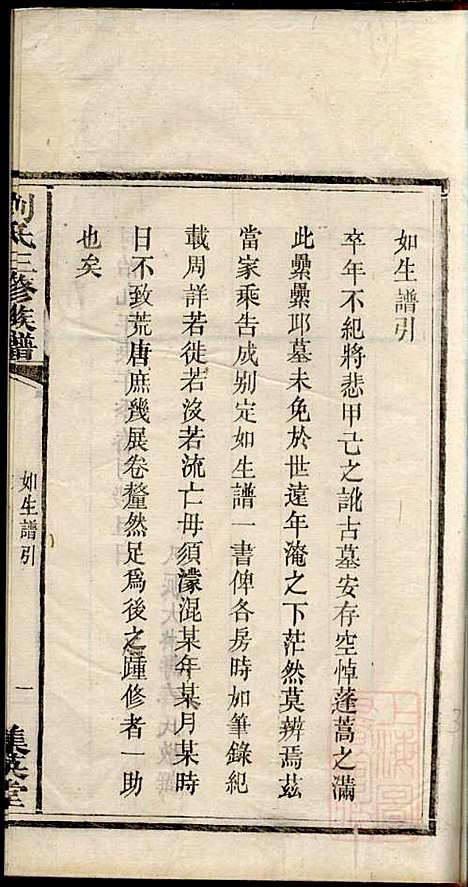 如生譜引
卒年不紀將悲甲己之訛古墓安存空悼蓬蒿之滿
此纍纍邱墓未免於世遠年淹之下茫然莫辨焉茲
當家乘告成别定如生譜一書俾各房時如筆錄紀
載周詳若徙若沒若流亡毋須濛混某年某月某時
日不致荒唐庶幾展卷釐然足爲後之踵修者一助
也矣
劉氏三修族譜
如生譜引
一
集英堂
上海圖